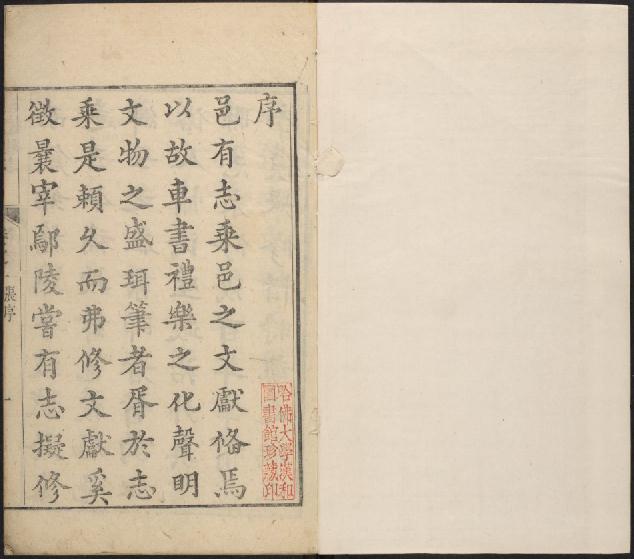 序
邑有志乘邑之文獻俻焉
以故車書禮樂之化聲明
文物之盛珥筆者胥於志
乘是頼久而弗修文獻奚
徵曩宰鄢陵嘗有志擬修
張序
一
哈佛大學漢和
圖書館珍藏印